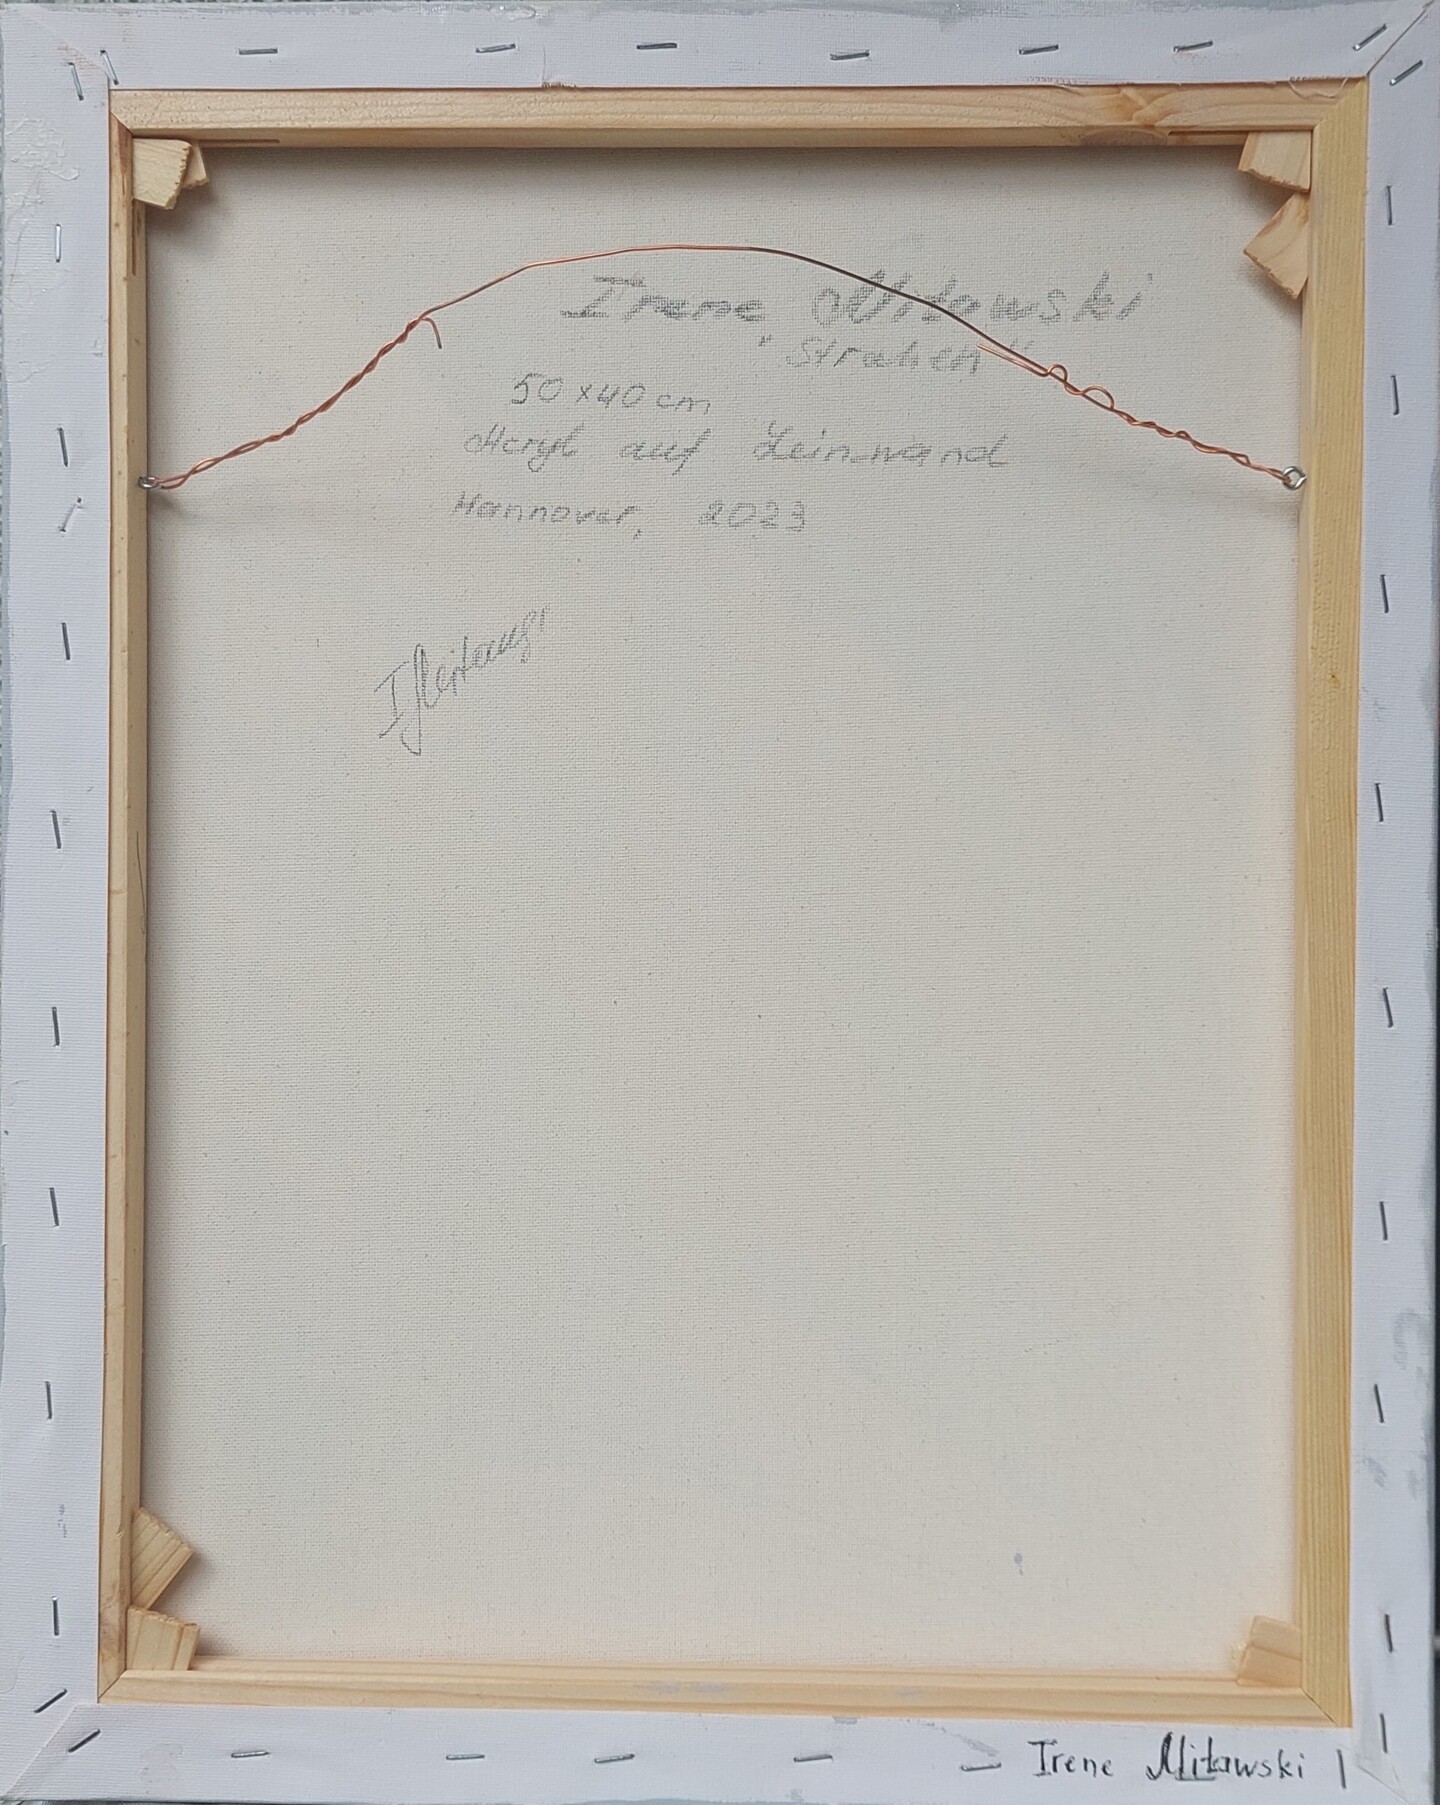 Irene Mitawski
"Strahen"
50 x 40 cm
Acryl auf Leinwand
Hannover, 2023
Irene Mitawski